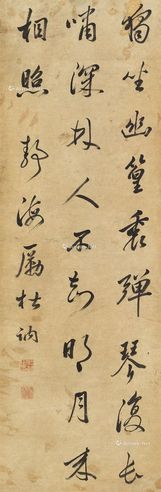 獨坐幽篁裏彈琴復長
嘯深林人不知明月來
相照 靜海厲杜訥